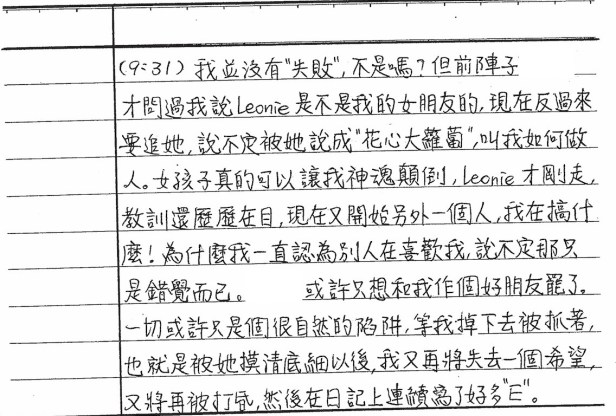 (9:31) 我並沒有"失敗",不是嗎?但前陣子
才問過我說Leonie是不是我的女朋友的,現在反過來
要追她,說不定被她說成"花心大蘿蔔",叫我如何做
人。女孩子真的可以讓我神魂顛倒,Leonie才剛走,
教訓還歷歷在目,現在又開始另外一個人,我在搞什
麼!為什麼我一直認為別人在喜歡我,說不定那只
是錯覺而已。 或許只想和我作個好朋友罷了。
一切或許只是個很自然的陷阱,等我掉下去被抓著,
也就是被她摸清底細以後,我又再將失去一個希望,
又將再被打昏,然後在日記上連續寫了好多"E"。